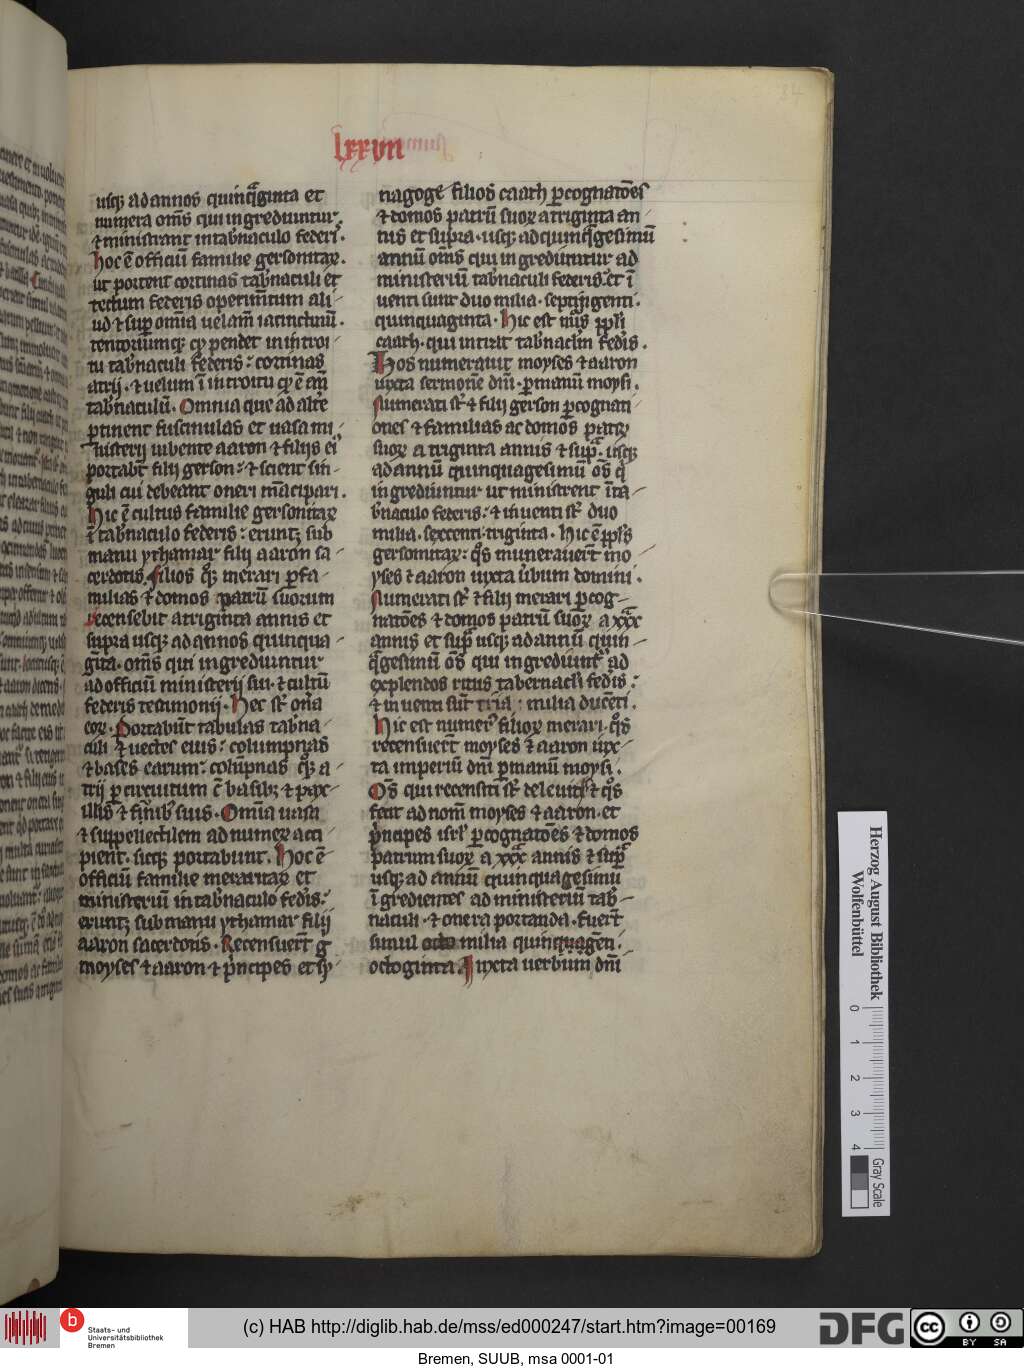 lxxvii
usq; ad annos quinq̄ginta et
numera om̄s qui ingrediuntur.
⁊ ministrant in tab̄naculo federis.
Hoc ē officiū familie gersonitaꝝ.
ut portent cortinas tab̄naculi et
tectum federis operim̄tum ali-
ud ⁊ sup om̄ia uelam̄
tentoriumq; qd pendet in introi-
tu tab̄naculi federis: cortinas
atrij. ⁊ uelum ī introitu qd ē an̄
tab̄naculū. Omnia que ad alt̄e
ꝑtinent fuscinulas et uasa mi-
nisterij iubente aaron ⁊ filijs eiꝰ
portabt̄ filij gerson: ⁊ scient sin-
guli cui debeant oneri mācipari.
Hic ē cultus familie gersonitaꝝ
ī tab̄naculo federis: erunt; sub
manu ythamar filij aaron sa-
cerdotis. Filios q̄; merari ꝑ fa-
milias ⁊ domos patrū suorum
recensebit a triginta annis et
supra usq; ad annos quinqua-
gīta. om̄s qui ingrediuntur
ad officiū ministerij sui. ⁊ cultū
federis testimonij. Hec st̄ on̄a
eoꝝ. Portabūt tabulas tab̄na-
culi ⁊ uectes eius: columpnas
⁊ bases earum: colūpnas q̄; a-
trij ꝑ circuitum c̄ basib; ⁊ pax-
illis ⁊ funibꝰ suis. Omīa uasa
⁊ suppellectilem ad numeꝝ acci-
pient. sicq; portabunt. Hoc ē
officiū familie meraritaꝝ et
ministeriū in tab̄naculo fedis:
erunt; sub manu ythamar filij
aaron sacerdotis. Recensuert̄ g̊
moyses ⁊ aaron ⁊ p̄ncipes et sy-
nagoge filios caath ꝑ cognatōes
⁊ domos patrū suoꝝ a triginta an-
nis et supra. usq; ad quinq̄gesimū
annū om̄s qui ingrediuntur ad
ministeriū tab̄naculi federis. et ī
uenti sunt duo milia. septingenti.
quinquaginta. Hic est nūs ppli
caath. qui intrāt tab̄naclm fedis.
Hos numerauit moyses ⁊ aaron
iuxta sermonē dn̄i. ꝑ manū moysi.
Numerati st̄ ⁊ filij gerson ꝑ cognati-
ones ⁊ familias ac domos patꝝ
suoꝝ a triginta annis ⁊ supͣ. usq;
ad annū quinquagesimū om̄s q̄
ingrediuntur ut ministrent ī ta-
b̄naculo federis: ⁊ inuenti st̄ duo
milia. sexcenti. triginta. Hic ē ppl̄s
gersonitaꝝ: qͦs numerauert̄ mo-
yses ⁊ aaron iuxta ūbum domini.
Numerati st̄ ⁊ filij merari ꝑ cog-
natōes ⁊ domos patrū suoꝝ a xxx
annis et supͣ usq; ad annū quin-
q̄gesimū om̄s qui ingrediunt̄ ad
explendos ritus tabernacli fedis:
⁊ inuenti sūt tria. milia ducēti.
Hic est numerꝰ filioꝝ merari. qͦs
recensuert̄ moyses ⁊ aaron iux-
ta imperiū dn̄i ꝑ manū moysi.
Om̄s qui recensiti st̄ de leuitis ⁊ qͦs
fecit ad nom̄ moyses ⁊ aaron. et
p̄ncipes isrl' ꝑ cognatōes ⁊ domos
patrum suoꝝ a xxx annis ⁊ supͣ
usq; ad annū quinquagesimū
īgredientes ad ministeriū tab̄-
naculi. ⁊ onera portanda. fuert̄
simul octo milia quingen̄.
octoginta. Iuxta uerbum dn̄i
Herzog August Bibliothek
Wolfenbüttel
0 1 2 3 4
Gray Scale
b
Staats- und
Universitätsbibliothek
Bremen
(c) HAB http://diglib.hab.de/mss/ed000247/start.htm?image=00169
DFG
cc BY SA
Bremen, SUUB, msa 0001-01